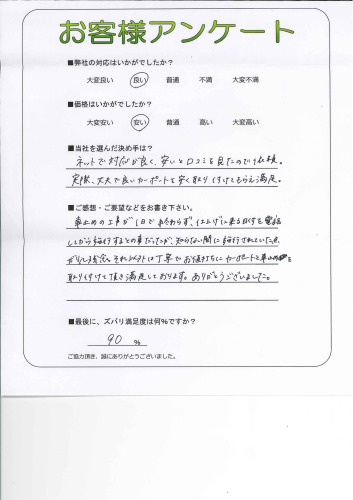 お客様アンケート
■弊社の対応はいかがでしたか？
大変良い 良い 普通 不満 大変不満
■価格はいかがでしたか？
大変安い 安い 普通 高い 大変高い
■当社を選んだ決め手は？
ネットで対応が良く、安いと口コミを見たので依頼。
実際、丈夫で良いカーポートを安く取り付けてもらえ満足。
■ご感想・ご要望などをお書き下さい。
車止めの工事が1日で終わらず、仕上げに来る日時を電話
してから施行するとの事だったが、知らない間に施行されていた点
がりし残念。それ以外は丁寧でお値打ちにカーポートと車止め を
取り付けて頂き満足しております。ありがとうございました。
■最後に、ズバリ満足度は何%ですか？
90 %
ご協力頂き、誠にありがとうございました。